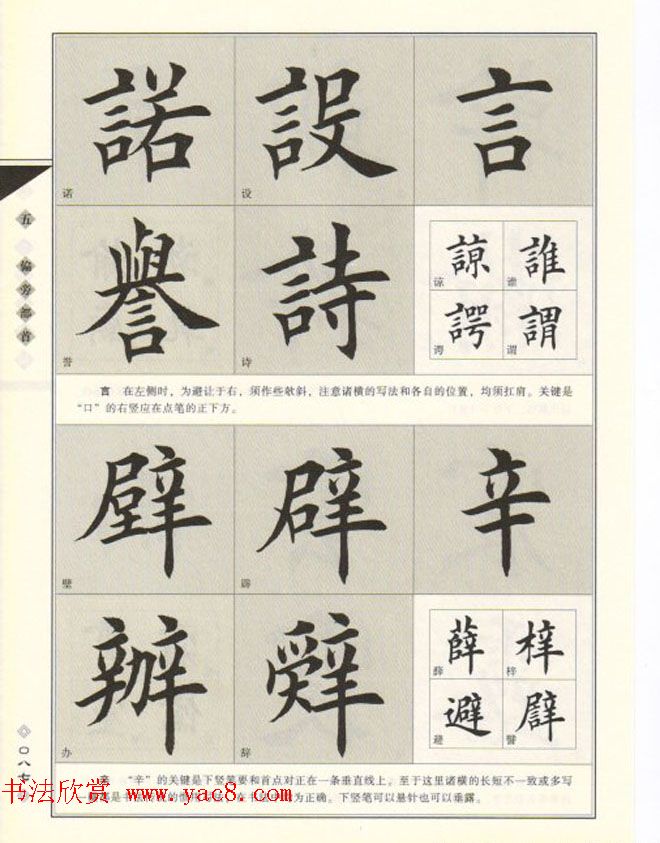 諾 設 言
诺 设
譽 詩 諒 誰
誉 诗 谅 谁
諤 謂
谔 谓
言 在左侧时，为避让于右，须作些欹斜，注意诸横的写法和各自的位置，均须扛肩。关键是
“口”的右竖应在点笔的正下方。
壁 辟 辛
壁 辟
辦 辭 薛 梓
办 辞 薛 梓
避
避
“辛”的关键是下竖笔要和首点对正在一条垂直线上，至于这里诸横的长短不一致或多写
为正确。下竖笔可以悬针也可以垂露。
五
偏旁部首
〇八七
书法欣赏 www.yac8.com